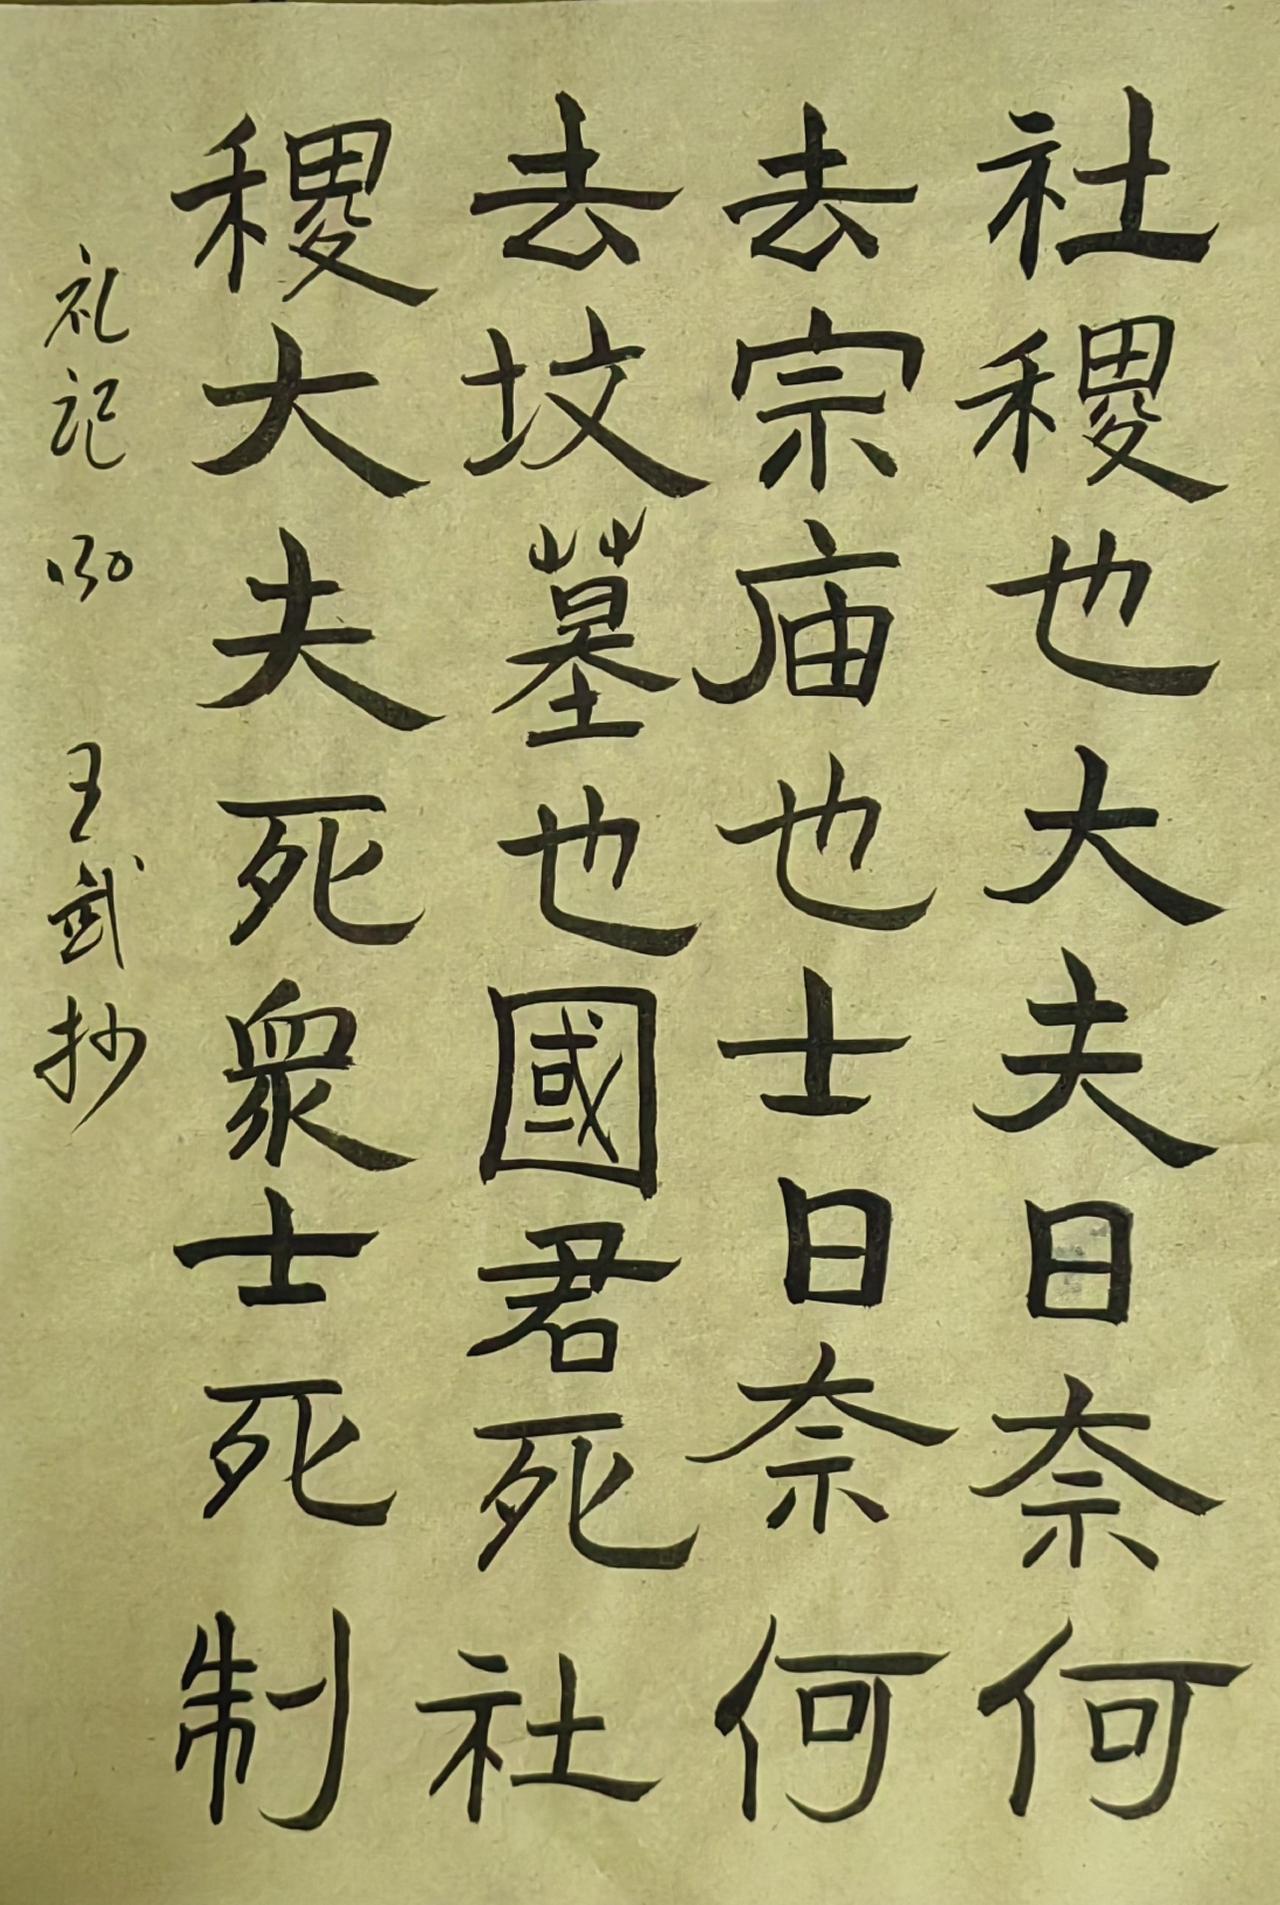 社稷也大夫日奈何
去宗庙也士日奈何
去坟墓也國君死社
稷大夫死衆士死制
礼记 130 王武抄